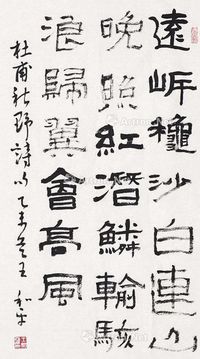 遠岸龝沙白連山
晚照紅潛鱗輸駭
浪歸翼會高風
杜甫秋野詩句乙未